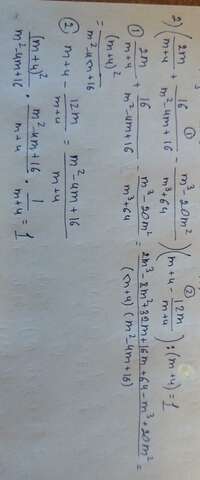 2) (2m/m+4 + 16/m²-4m+16 - m³-20m²/m³+64) (m+4 - 12m/m+4) : (m+4) = 1
① 2m/m+4 + 16/m²-4m+16 - m³-20m²/m³+64 = 2m³-8m²+32m+16m+64-m³+20m²/(m+4)(m²-4m+16) =
= (m+4)²/m²-4m+16
② m+4 - 12m/m+4 = m²-4m+16/m+4
(m+4)²/m²-4m+16 · m²-4m+16/m+4 · 1/m+4 = 1